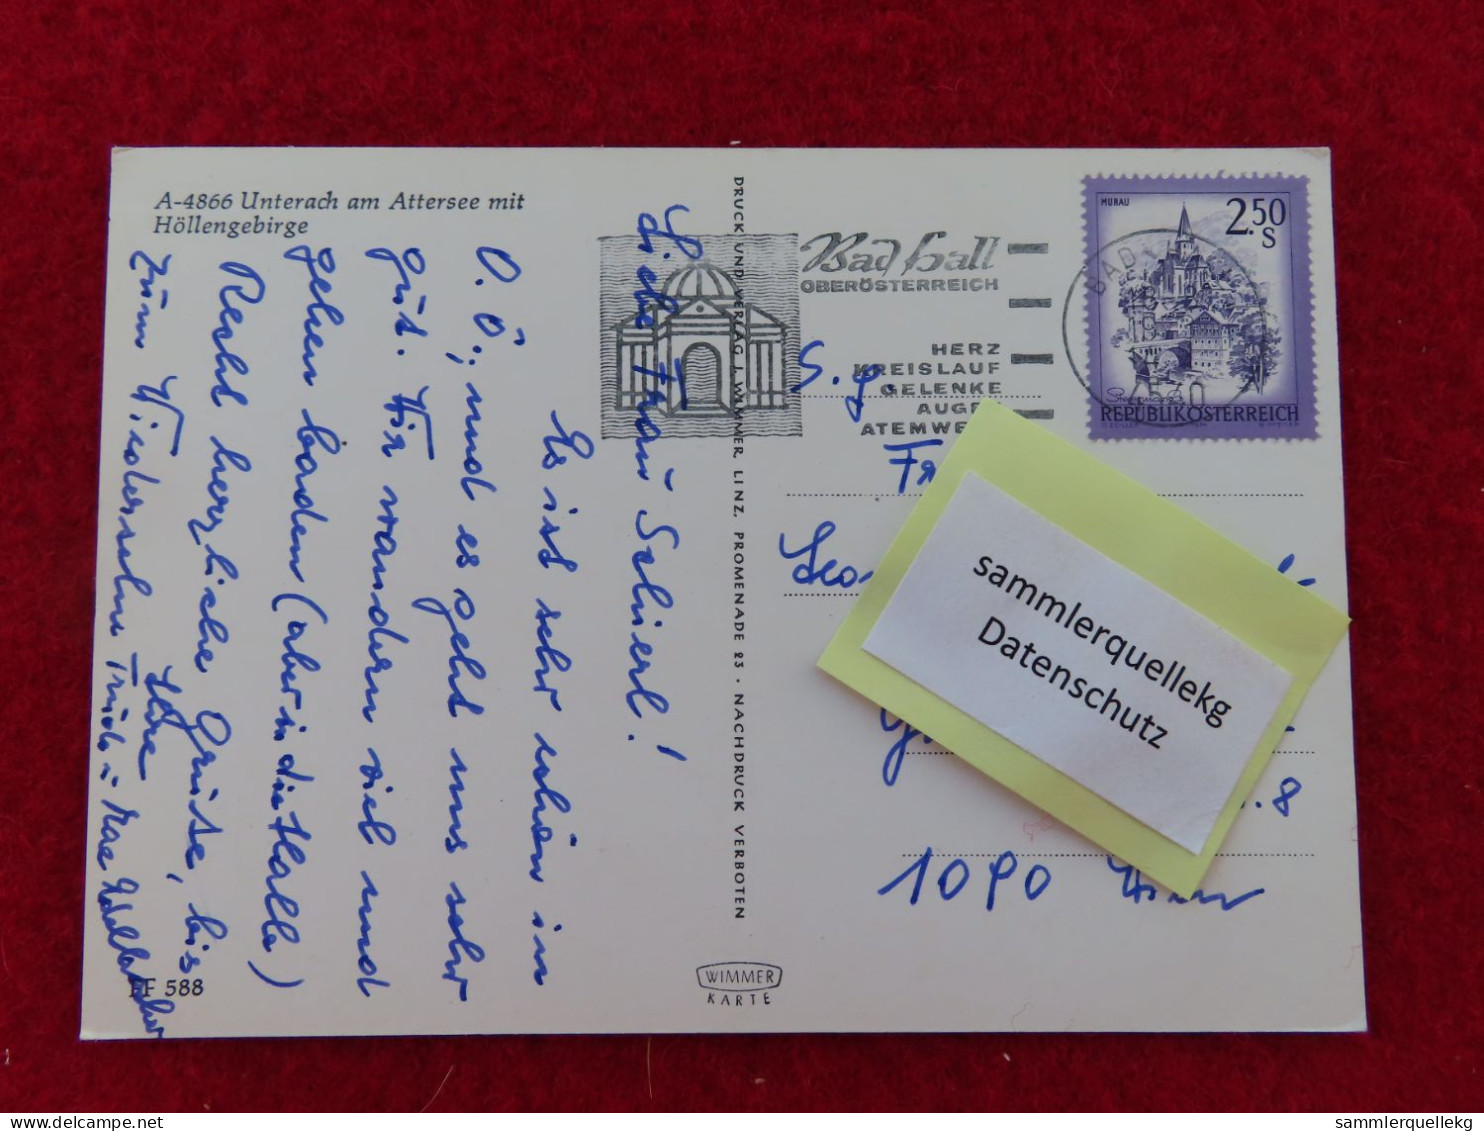 A-4866 Unterach am Attersee mit
Höllengebirge
Liebe Frau Schierl!
Es ist sehr schön in
O.Ö., und es geht uns sehr
gut. Wir wandern viel und
gehen baden (aber in die Halle)
Recht herzliche Grüße, bis
zum Wiedersehn
Ihre
Trude
FF 588
DRUCK UND VERLAG J. WIMMER, LINZ, PROMENADE 23 · NACHDRUCK VERBOTEN
WIMMER
KARTE
Bad Hall
OBERÖSTERREICH
HERZ
KREISLAUF
GELENKE
AUGE
ATEMWE
MURAU
2.50
S
REPUBLIK ÖSTERREICH
BAD
4540
S. g.
Fr
8
1090 Wien
sammlerquellekg
Datenschutz
sammlerquellekg